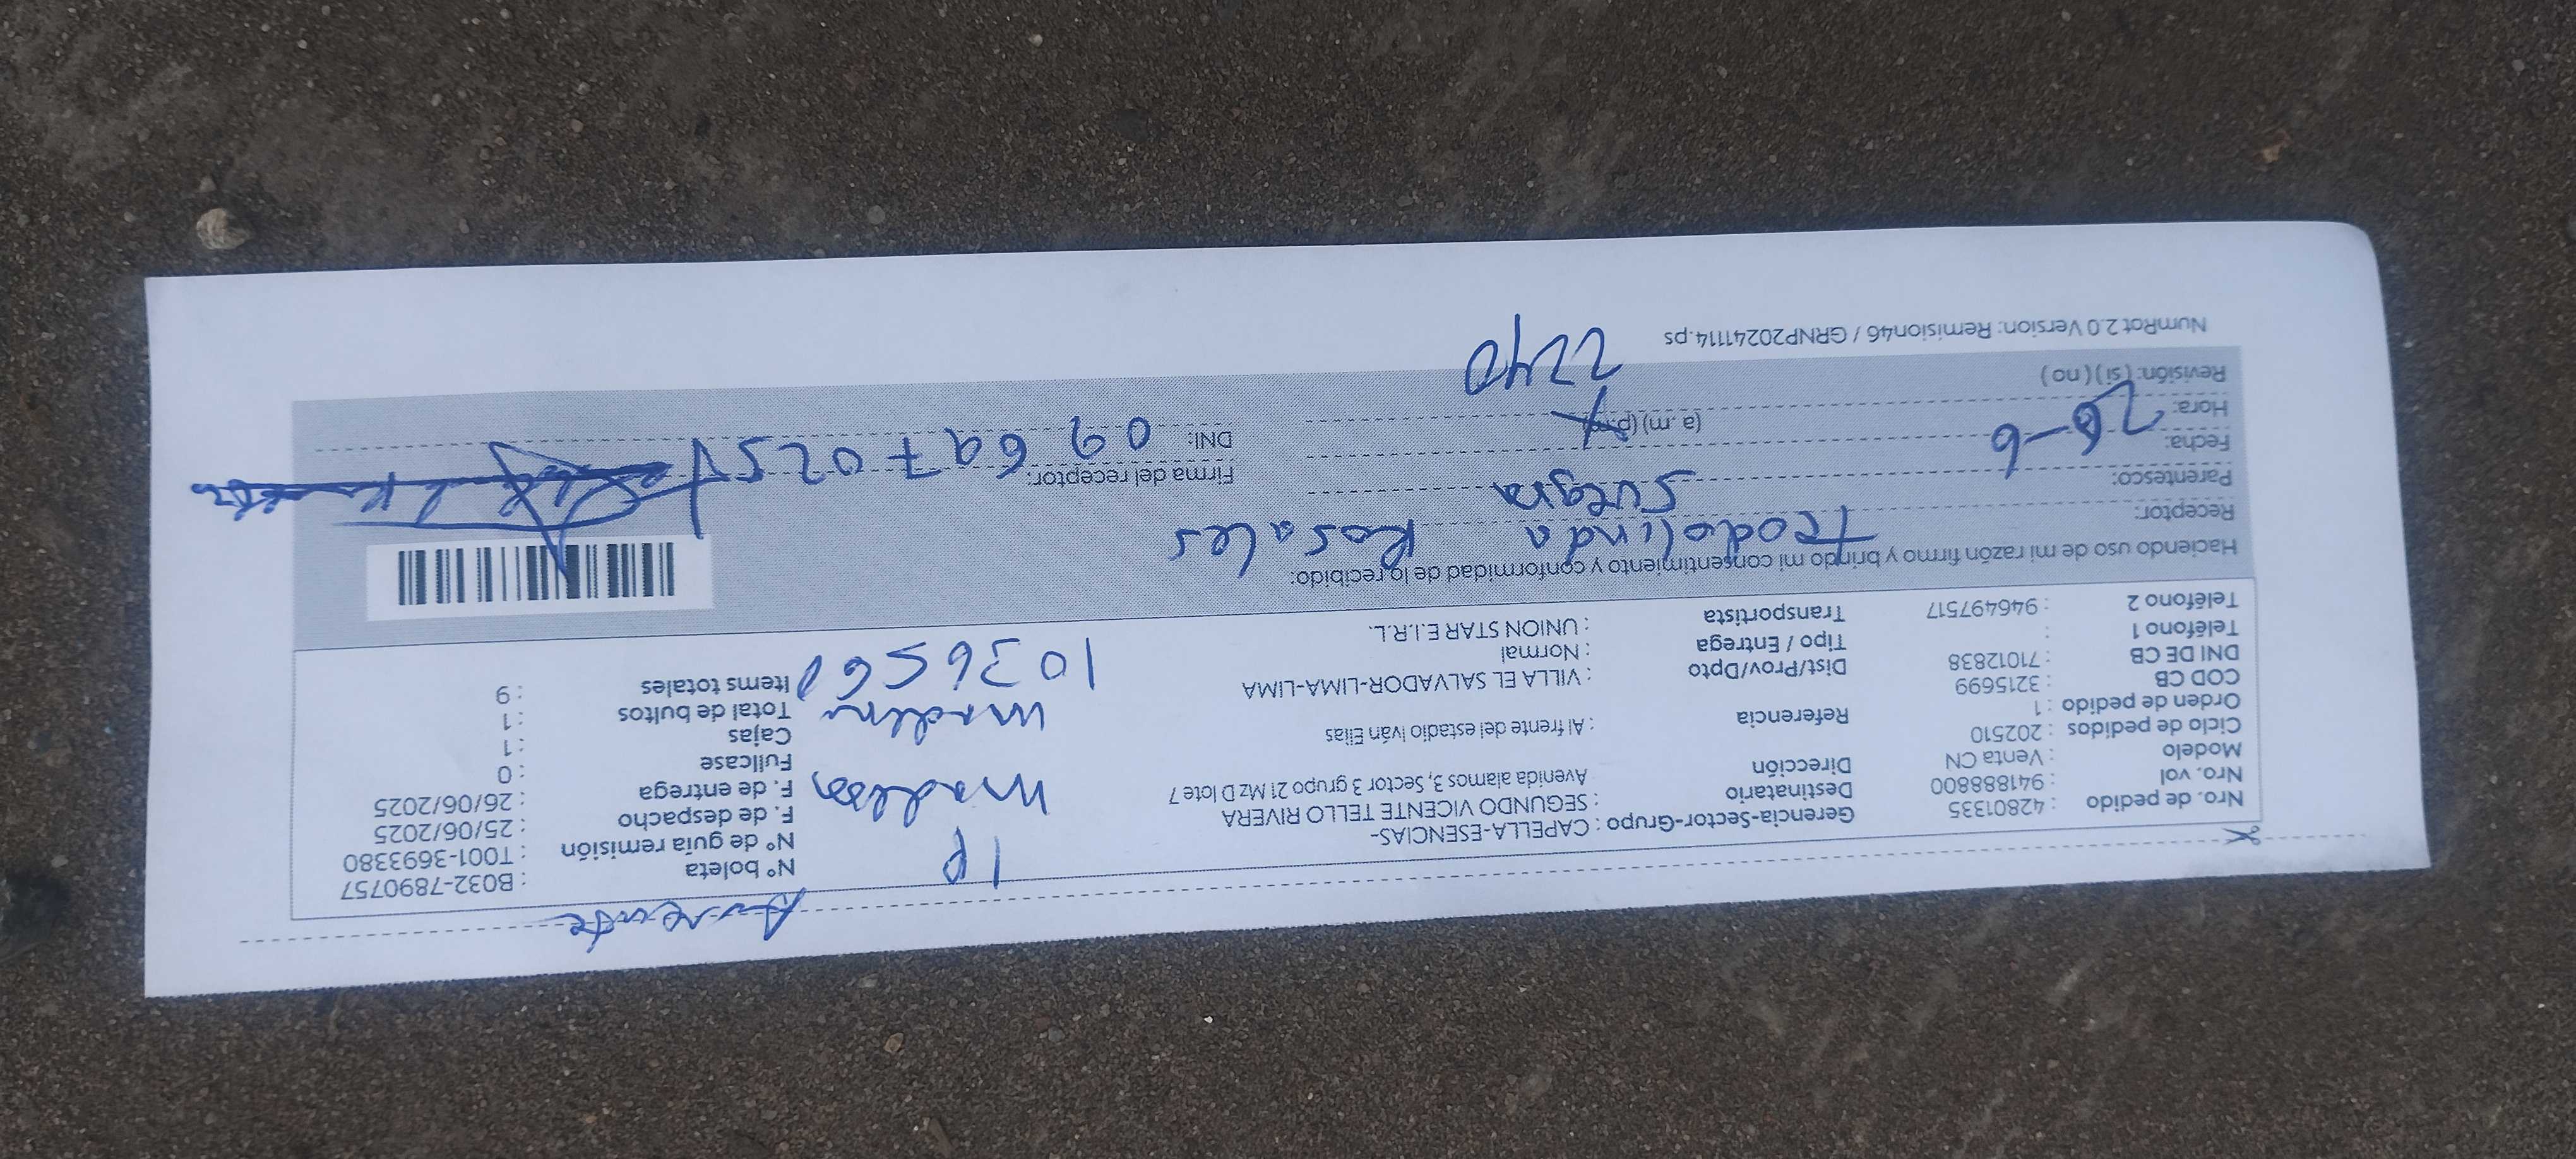 Ausente
Nro. de pedido : 42801335 Gerencia-Sector-Grupo : CAPELLA-ESENCIAS- 1P Nº boleta : B032-7890757
Nro. vol : 941888800 Destinatario : SEGUNDO VICENTE TELLO RIVERA Nº de guía remisión : T001-3693380
Modelo : Venta CN Dirección Avenida alamos 3, Sector 3 grupo 21 Mz D lote 7 F. de despacho : 25/06/2025
Ciclo de pedidos : 202510 F. de entrega : 26/06/2025
Orden de pedido : 1 Referencia : Al frente del estadio Iván Elias Fullcase : 0
COD CB : 3215699 Cajas : 1
DNI DE CB : 71012838 Dist/Prov/Dpto : VILLA EL SALVADOR-LIMA-LIMA Total de bultos : 1
Teléfono 1 : Tipo / Entrega : Normal Items totales : 9
Teléfono 2 : 946497517 Transportista : UNION STAR E.I.R.L.
Haciendo uso de mi razón firmo y brindo mi consentimiento y conformidad de lo recibido:
Receptor: Teodolinda Rosales
Parentesco: Suegra Firma del receptor:
Fecha: 26-6 DNI: 09697025
Hora: (a .m) (p.m)
Revisión: ( si ) ( no ) 2240
NumRot 2.0 Version: Remision46 / GRNP20241114.ps